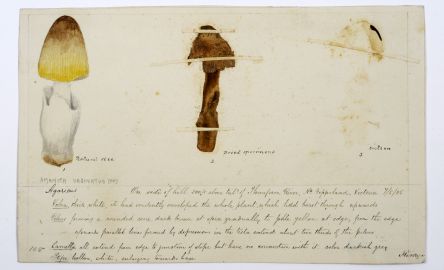 Natural size
1
Dried specimens
2
Section
3
AMANITA VAGINATA
Agaricus
On side of hill 500 ft above Thompson River, Nth Gippsland, Victoria
Volva thick white, it had evidently enveloped the whole plant, which had burst through upwards
Pileus forming a rounded cone dark brown at apex gradually to pale yellow at edge, from the edge
upwards parallel lines formed by depression in the extend about two thirds of the pileus
Lamellae all extend from edge to junction of stipe but have no connection with it. color darkish grey
Stipe hollow, white, enlarging towards base